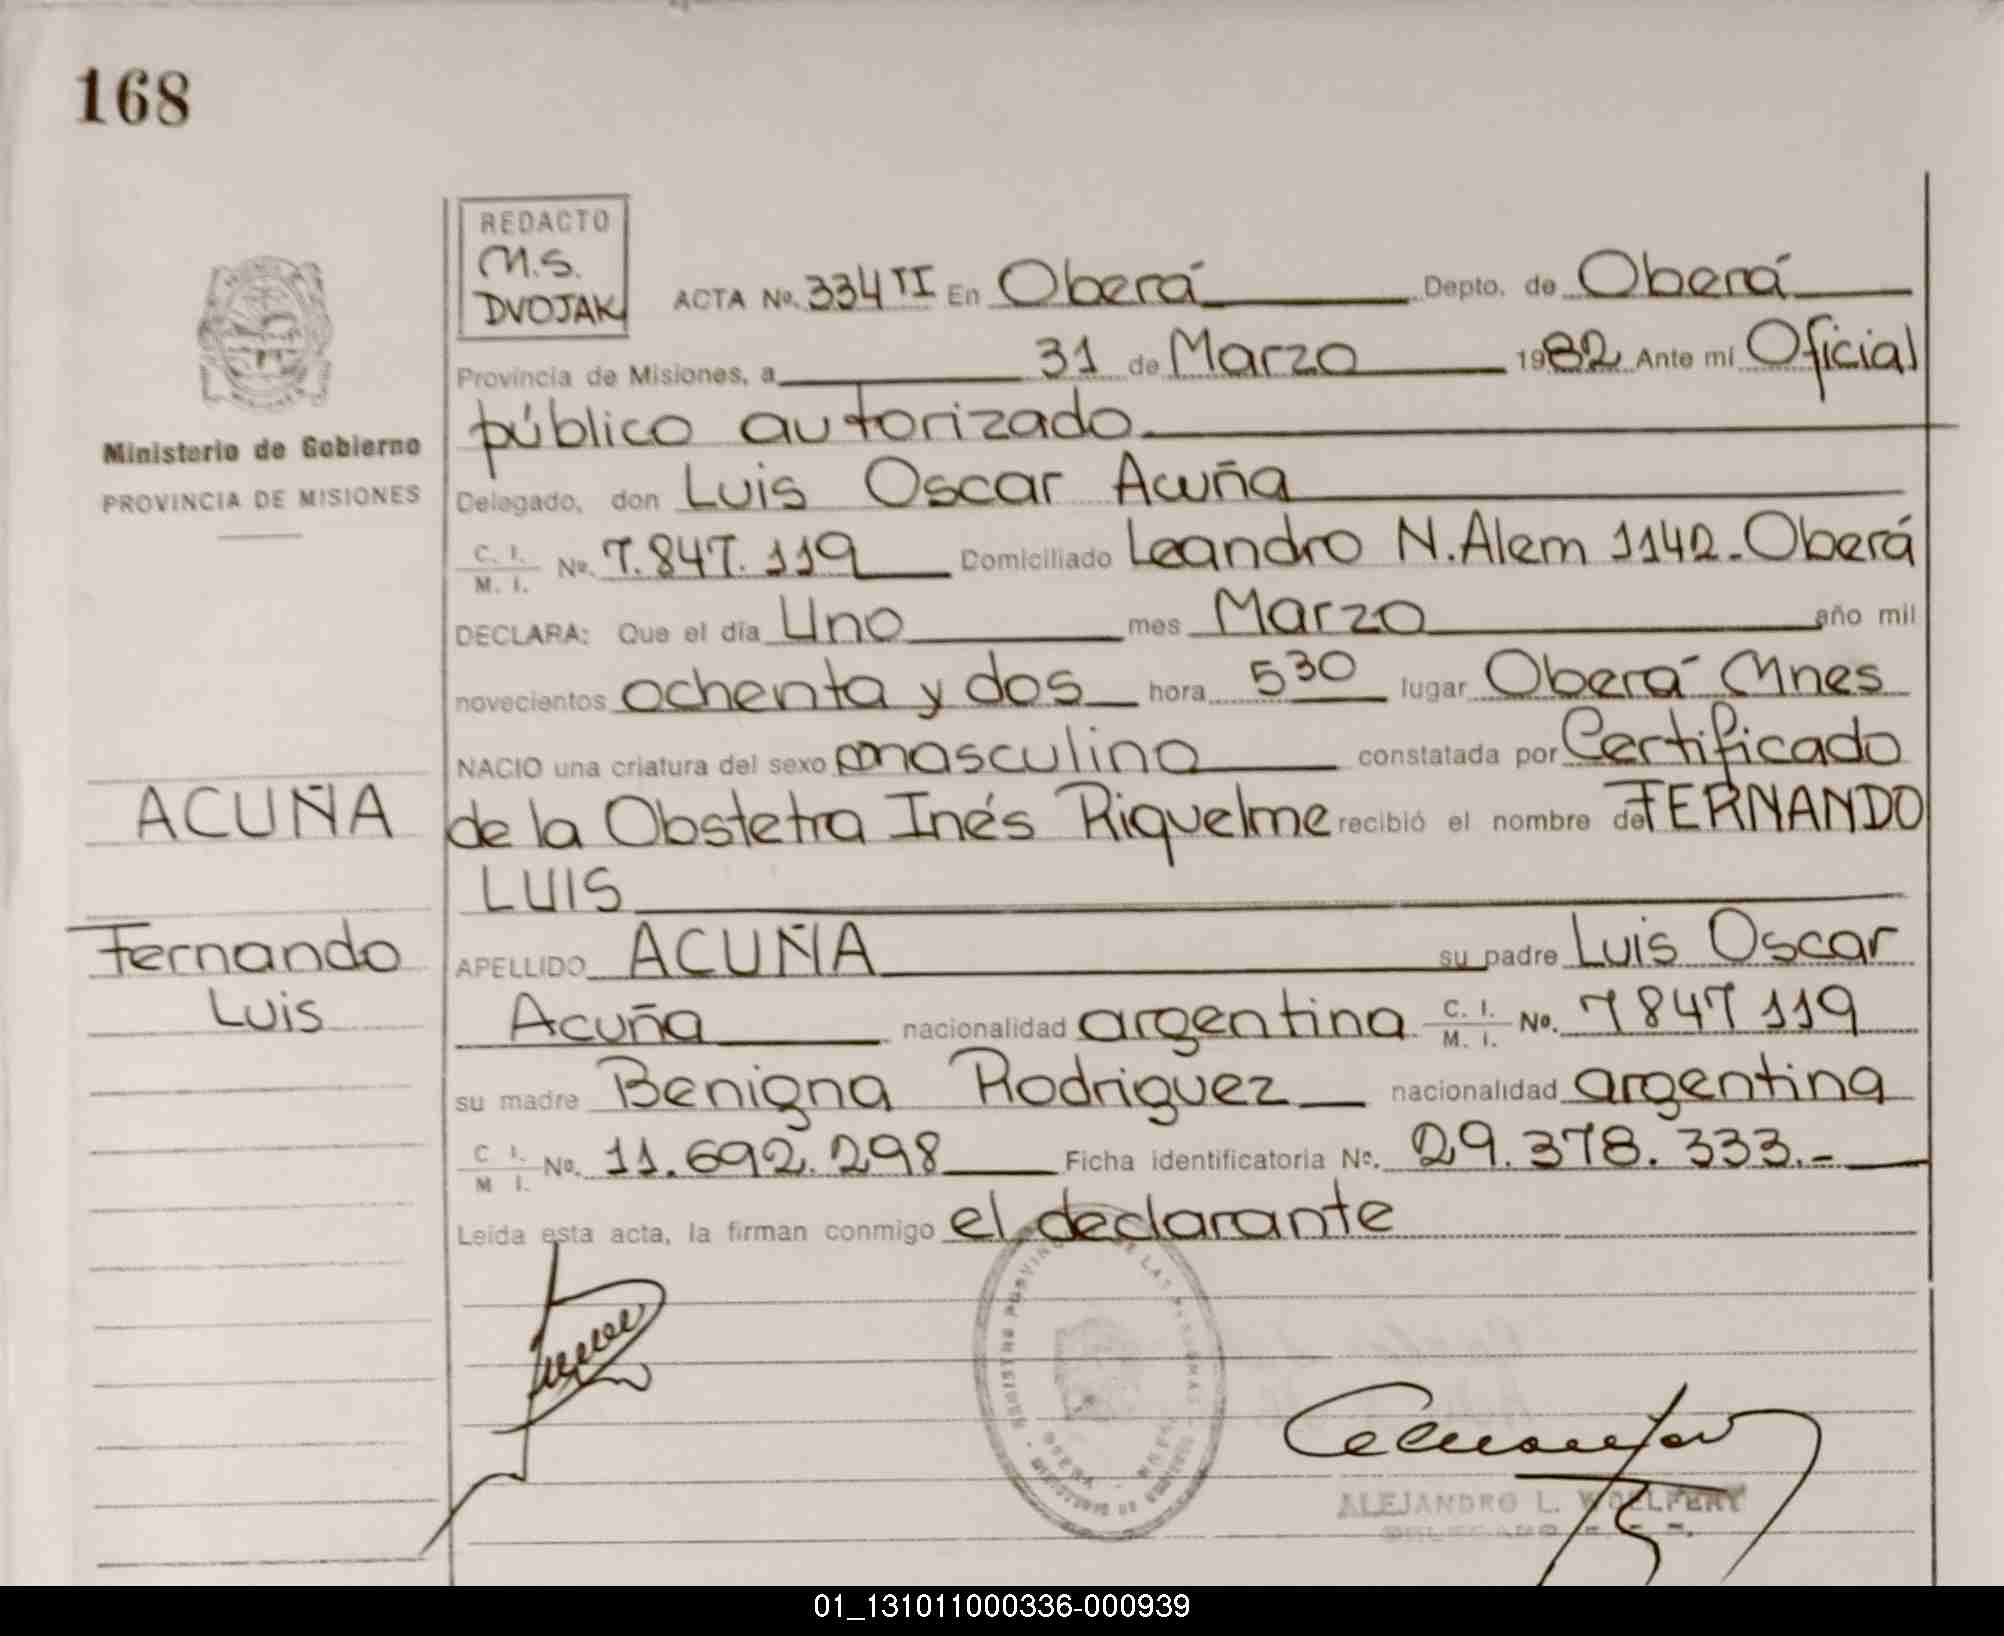 168
REDACTO
M.S.
DVOJAK
ACTA No. 334 II En Oberá Depto. de Oberá
Provincia de Misiones, a 31 de Marzo 1982 Ante mí Oficial
público autorizado
Ministerio de Gobierno
PROVINCIA DE MISIONES
Delegado, don Luis Oscar Acuña
C. I. / M. I. No. 7.847.119 Domiciliado Leandro N. Alem 1142 - Oberá
DECLARA: Que el día Uno mes Marzo año mil
novecientos ochenta y dos hora 5 30 lugar Oberá Mnes
NACIO una criatura del sexo masculino constatada por Certificado
ACUÑA
de la Obstetra Inés Riquelme recibió el nombre de FERNANDO
LUIS
Fernando
Luis
APELLIDO ACUÑA su padre Luis Oscar
Acuña nacionalidad argentina C. I. / M. I. No. 7847119
su madre Benigna Rodriguez nacionalidad argentina
C I. / M I. No. 11.692.298 Ficha identificatoria No. 29.378.333.-
Leída esta acta, la firman conmigo el declarante
ALEJANDRO L. WOELFERT
DELEGADO
01_131011000336-000939